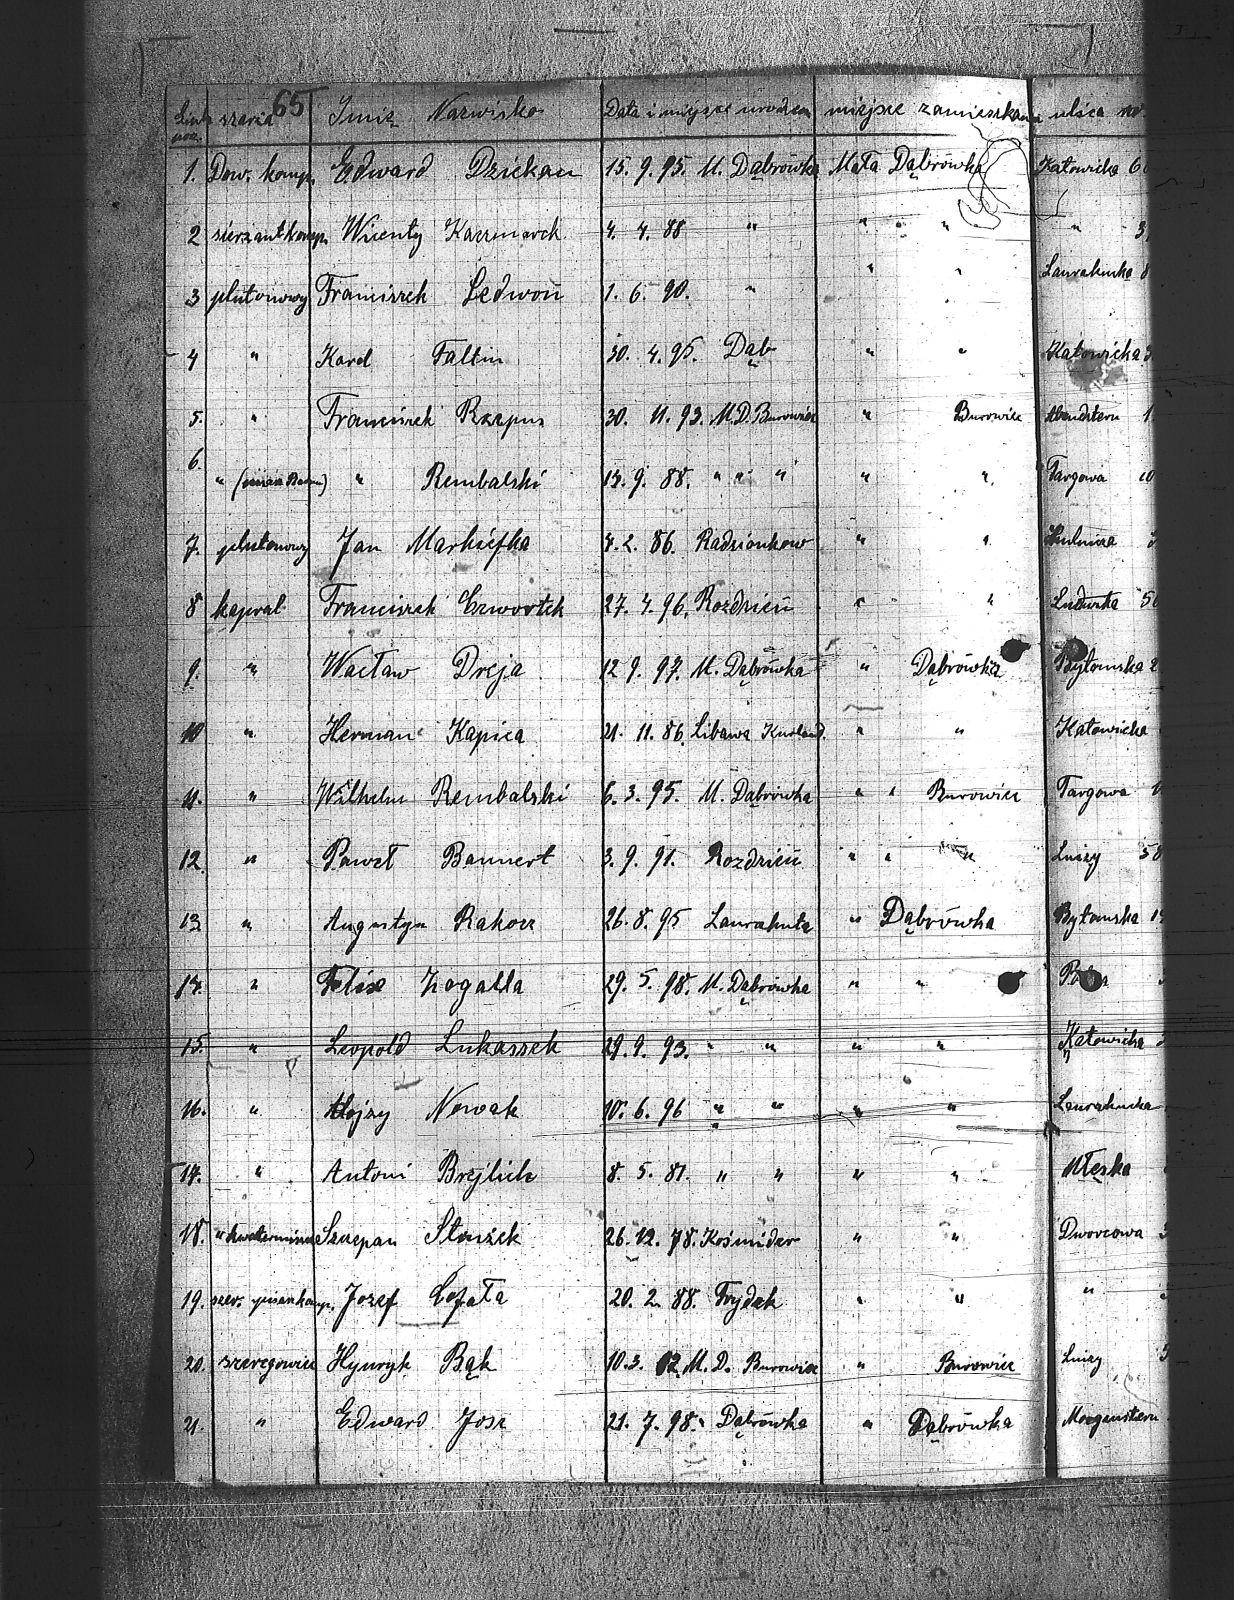 65
szarża Imię Nazwisko Data i miejsce urodzen miejsce zamieszkania ulica no
1. Dow. komp. Edward Dziekan 15. 9. 95. M. Dąbrówka Mała Dąbrówka Katowicka
2 sierżant komp. Wicenty Kaczmarek 4. 4. 88 " " " " "
3 plutonowy Franciszek Ledwoń 1. 6. 90. " " " Laurahucka
4 " Karol Faltin 30. 4. 95. Dąb " " Katowicka
5. " Franciszek Rzepus 30. 11. 93. M. D. Burowiec " Burowiec
6. " " Rembalski 14. 9. 88. " " " " " Targowa
7. plutonowy Jan Markiefka 4. 2. 86. Radzionkow " "
8 kapral Franciszek Czwortek 27. 4. 96. Rozdzień " "
9. " Wacław Dreja 12 9. 97. M. Dąbrówka " Dąbrówka Bytomska 2
10 " Herman Kapica 21. 11. 86. Libawa Kurland. " " Katowicka
11. " Wilhelm Rembalski 6. 3. 95. M. Dąbrówka " " Burowiec Targowa
12 " Paweł Bannert 3. 9. 91. Rozdzień " " " Luizy 58
13 " Augustyn Rakocz 26. 8. 95 Laurahuta " Dąbrówka Bytomska
14. " Felix Zogalla 29. 5. 98. M. Dąbrówka " "
15. " Leopold Lukaszek 29. 9. 93. " " " " Katowicka
16. " Alojzy Nowak 10. 6. 96 " " " " Laurahucka
17. " Antoni Brejlich 8. 5. 81. " " " "
18. " Szczepan Stouzek 26. 12. 78. Kośmider " " Dworcowa
19. Jozef Łopata 20. 2. 88. Frydek " " "
20. szeregowiec Hynryk Bąk 10. 3. 02. M. D. Burowiec " Burowiec Luizy
21. " Edward Josz 21. 7. 98. Dąbrówka " Dąbrówka Morgenstern